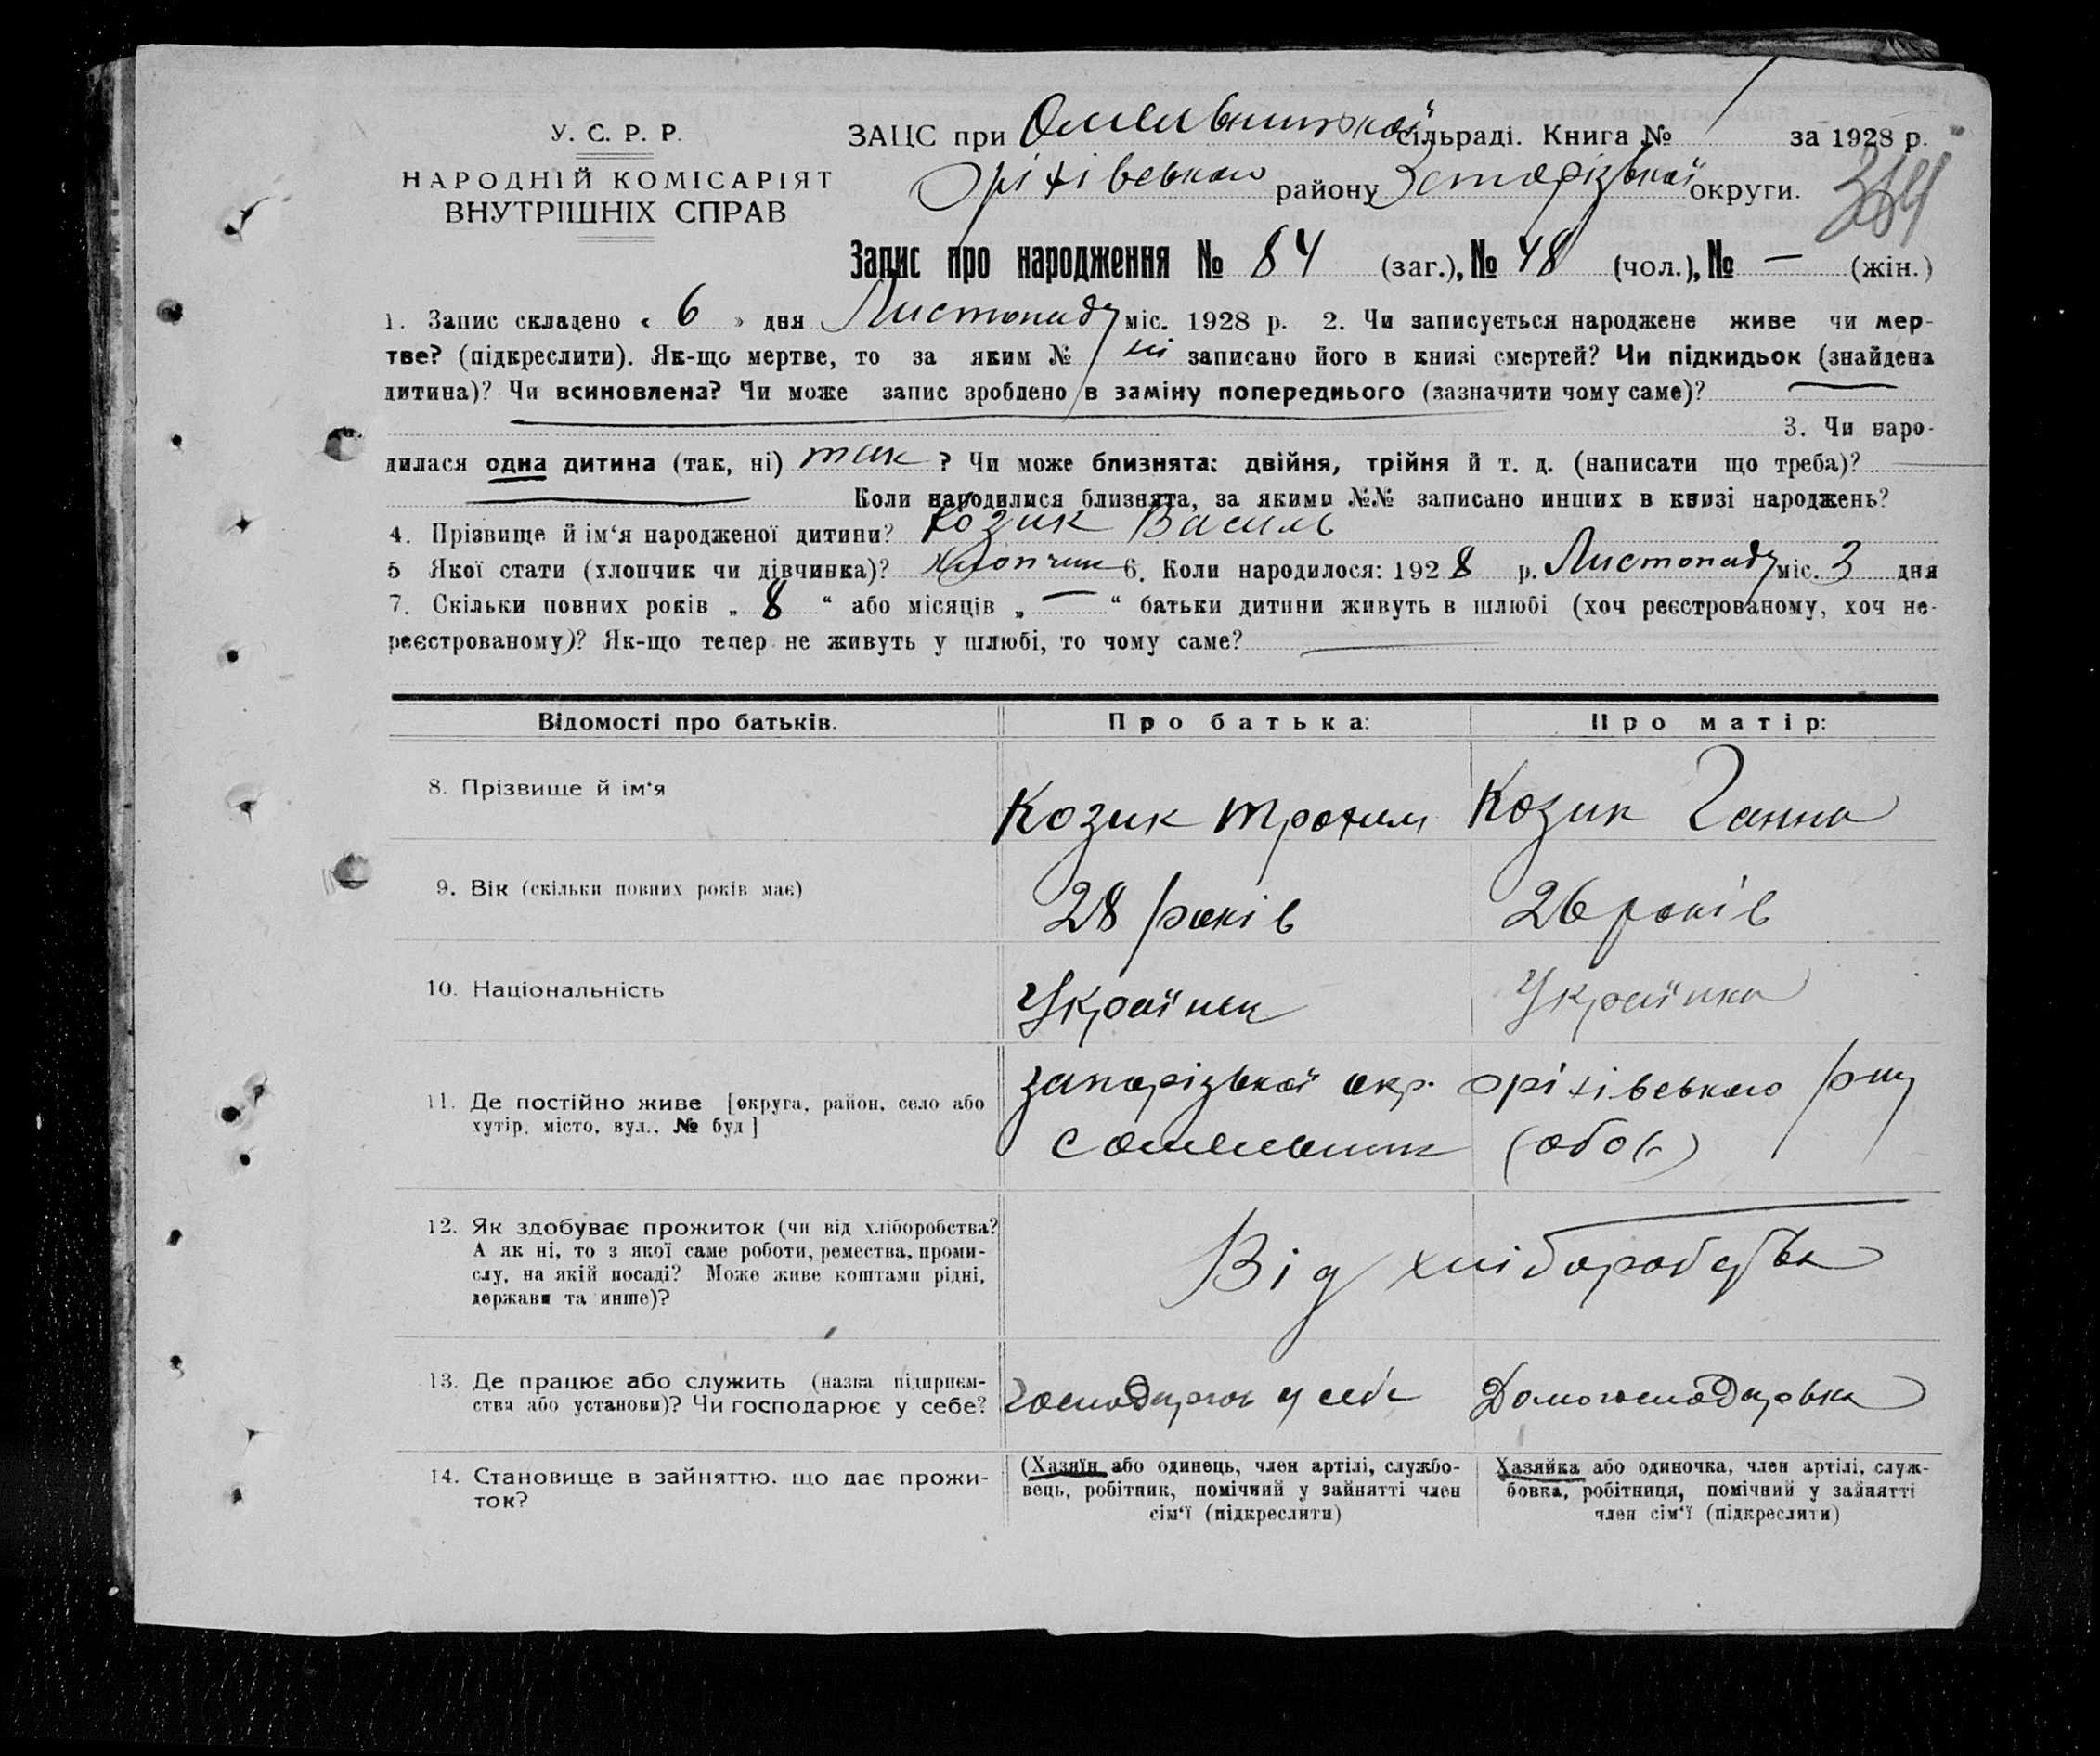 У. С. Р. Р.
НАРОДНІЙ КОМІСАРІЯТ
ВНУТРІШНІХ СПРАВ
ЗАЦС при Омельницької сільраді. Книга № 1 за 1928 р.
Оріхівського району Запорізької округи.
Запис про народження № 84 (заг.), № 48 (чол.), № — (жін.)
1. Запис складено « 6 » дня Листопаду міс. 1928 р. 2. Чи записується народжене живе чи мер-
тве? (підкреслити). Як-що мертве, то за яким № ні записано його в книзі смертей? Чи підкидьок (знайдена
дитина)? Чи всиновлена? Чи може запис зроблено в заміну попереднього (зазначити чому саме)? —
3. Чи наро-
дилася одна дитина (так, ні) так ? Чи може близнята: двійня, трійня й т. д. (написати що треба)? —
Коли народилися близнята, за якими №№ записано инших в книзі народжень?
4. Прізвище й ім‘я народженої дитини? Козик Василь
5 Якої стати (хлопчик чи дівчинка)? Хлопчик 6. Коли народилося: 1928 р. Листопаду міс. 3 дня
7. Скільки повних років „ 8 “ або місяців „ — “ батьки дитини живуть в шлюбі (хоч реєстрованому, хоч не-
реєстрованому)? Як-що тепер не живуть у шлюбі, то чому саме? —
Відомості про батьків. Про батька: Про матір:
8. Прізвище й ім‘я
Козик Трохим Козик Ганна
9. Вік (скільки повних років має)
28 років 26 років
10. Національність
Українец Українка
11. Де постійно живе [округа, район, село або
хутір, місто, вул., № буд]
Запорізької окр. Оріхівського р-ну
с Омельник (обоє)
12. Як здобуває прожиток (чи від хліборобства?
А як ні, то з якої саме роботи, ремества, проми-
слу, на якій посаді? Може живе коштами рідні,
держави та инше)?
Від хліборобства
13. Де працює або служить (назва підприєм-
ства або установи)? Чи господарює у себе?
Господарює у себе Домогосподарька
14. Становище в зайняттю, що дає прожи-
ток?
(Хазяїн або одинець, член артілі, службо-
вець, робітник, помічний у зайнятті член
сім‘ї (підкреслити)
Хазяйка або одиночка, член артілі, служ-
бовка, робітниця, помічний у зайнятті
член сім‘ї (підкреслити)